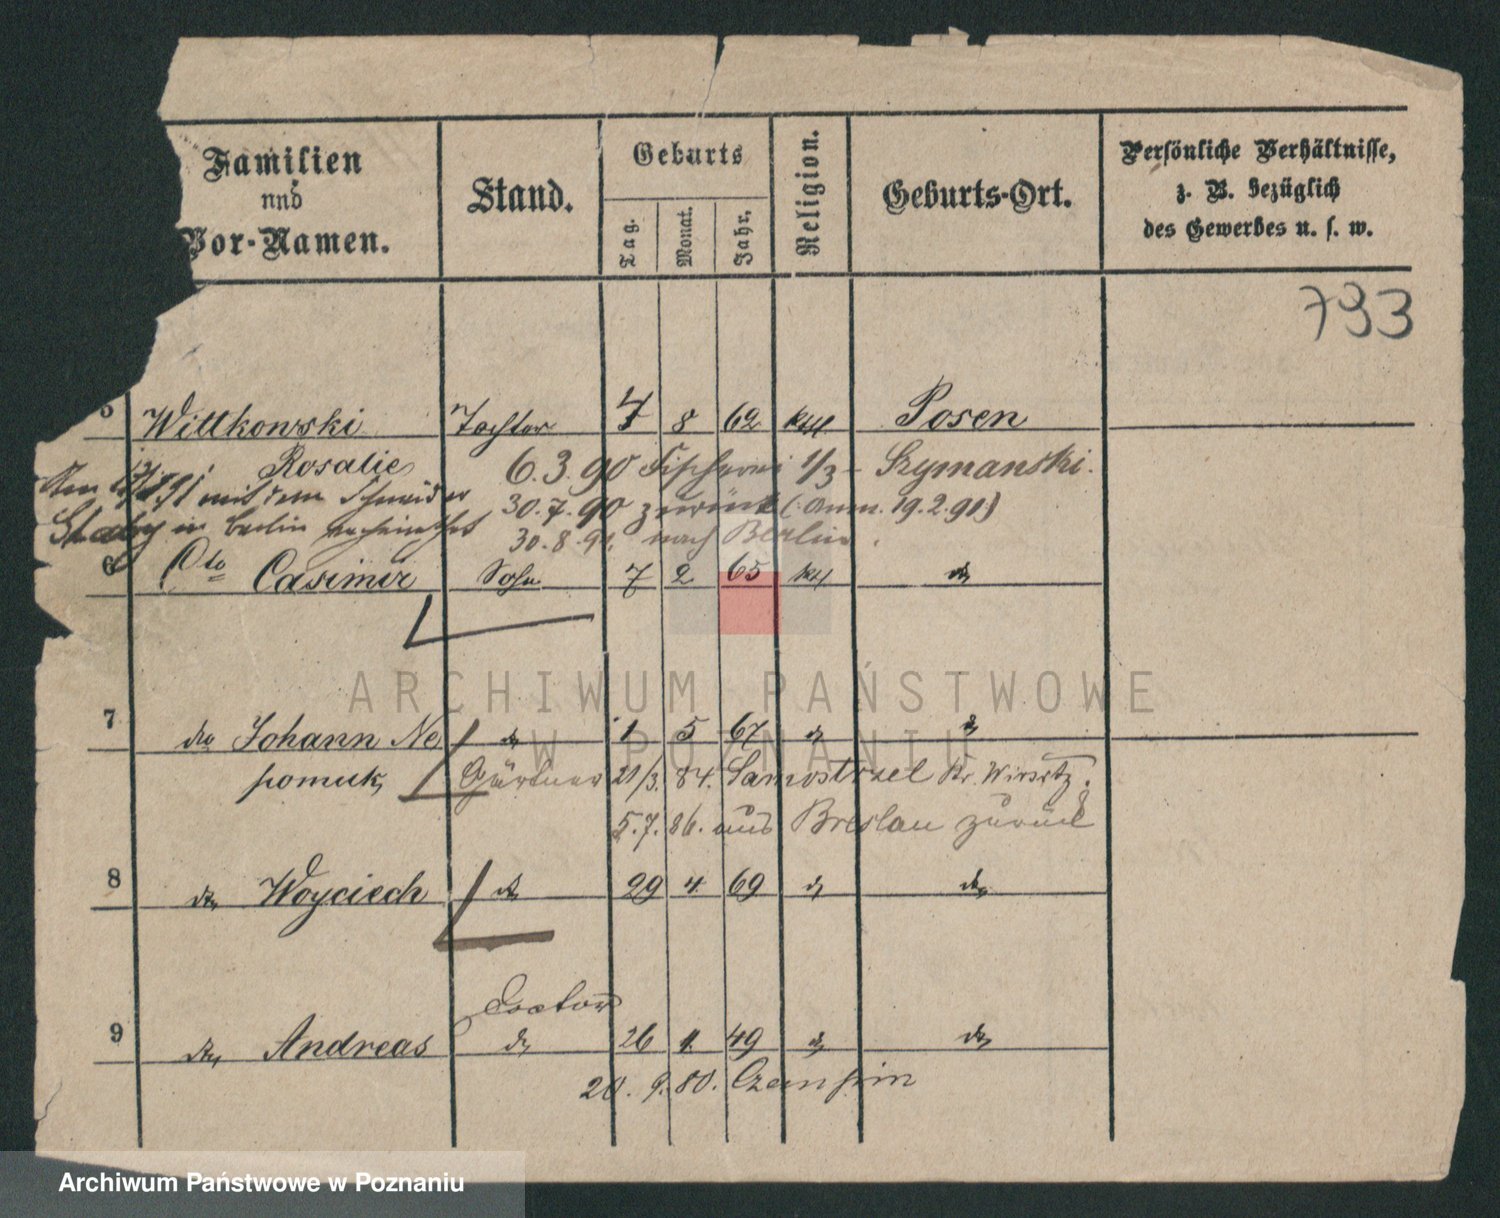 Familien
und
Vor-Namen.
Stand.
Geburts
Tag.
Monat.
Jahr.
Religion.
Geburts-Ort.
Persönliche Verhältnisse,
z. B. bezüglich
des Gewerbes u. s. w.
733
5 Wittkowski Tochter 7 8 62 kth Posen
Rosalie 6.3.90 Fischerei 1/3 - Szymanski.
mit dem Schneider 30.7.90 zurück (: Anm. 19.2.91)
in Berlin verheirathet 30.8.91. nach Berlin.
6 Dto Casimir Sohn 7 2 65 kth do
7 do Johann Ne do 1 5 67 do do
pomuk, Gärtner 21/3. 84. Samostrzel Kr. Wirsitz.
5.7.86. aus Breslau zurück
8 do Woyciech do 29 4 69 do do
Doctor
9 do Andreas do 26 11 49 do do
20.9.80. Czempin
ARCHIWUM PAŃSTWOWE
W POZNANIU
Archiwum Państwowe w Poznaniu